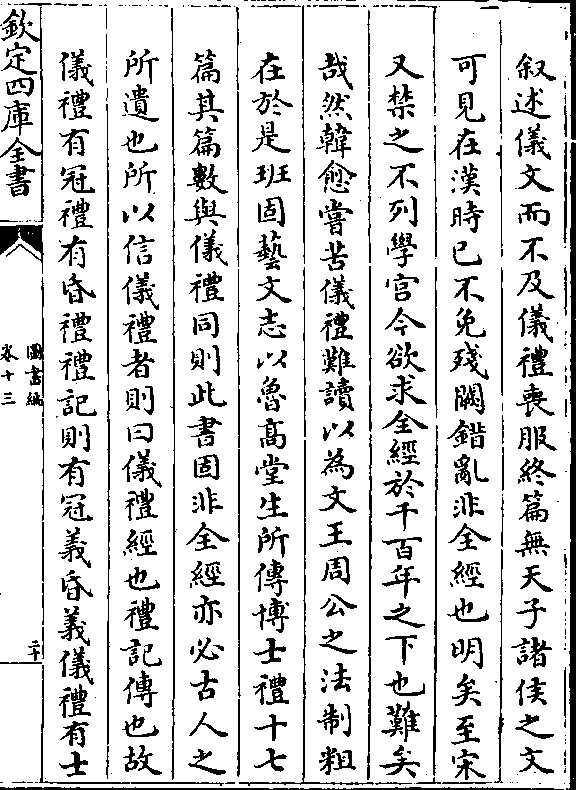 叙述儀文而不及儀禮喪服終篇無天子諸侯之文
可見在漢時已不免殘闕錯亂非全經也明矣至宋
又禁之不列學宫今欲求全經於千百年之下也難矣
哉然韓愈嘗苦儀禮難讀以為文王周公之法制粗
在於是班固藝文志以魯髙堂生所傳博士禮十七
篇其篇數與儀禮同則此書固非全經亦必古人之
所遺也所以信儀禮者則曰儀禮經也禮記傳也故
儀禮有冠禮有昏禮禮記則有冠義昏義儀禮有士
欽定四庫全書
圖書編
卷十三
二十